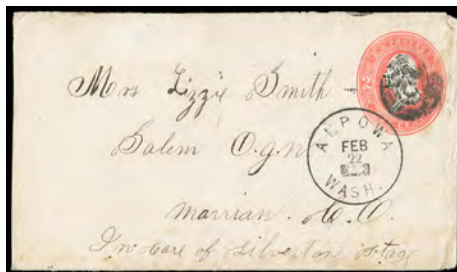 Mrs Lizzie Smith
Salem O.g.n
ALPOWA
FEB
22
WASH.
Marrian. 
In care of Silverton Stage